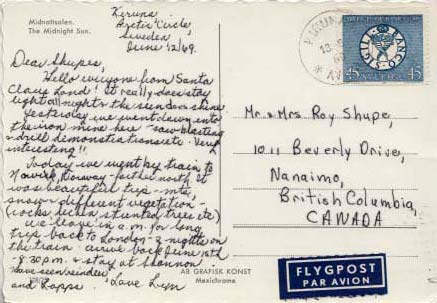 Midnattsolen.
The Midnight Sun.
Kiruna
Arctic Circle,
Sweden
June 12/69.
Dear Shupes,
Hello everyone from Santa
Claus Land! It really does stay
light all night & the sun does shine
Yesterday we went down into
the iron mine here - saw blasting
& drill demonstrations etc. Very
interesting!!
Today we went by train to
Narvik, Norway - farther north. It
was beautiful trip - mts
snow & different vegetation -
(rocks, lichen stunted trees etc)
We leave in a.m. for long
trip back to London - 2 nights on
the train - arrive back June 15th
8:30 p.m. & stay at Shannon.
Have seen reindeer
and Lapps.
Love Lyn
KIRUNA
SIGILL
BANCO
45
SVERIGE
45
Mr. & Mrs Roy Shupe,
1011 Beverly Drive,
Nanaimo,
British Columbia,
CANADA
AB GRAFISK KONST
Mexichrome
FLYGPOST
PAR AVION